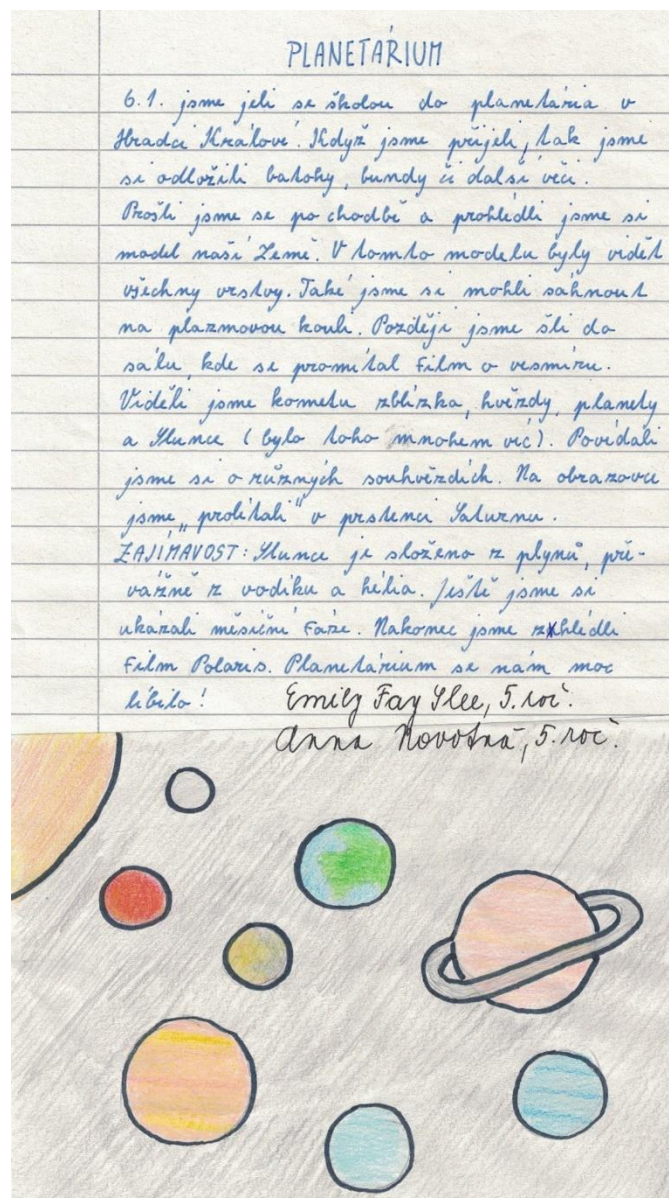 PLANETÁRIUM
6.1. jsme jeli se školou do planetária v
Hradci Králové. Když jsme přijeli, tak jsme
si odložili batohy, bundy či další věci.
Prošli jsme se po chodbě a prohlédli jsme si
model naší Země. V tomto modelu byly vidět
všechny vrstvy. Také jsme si mohli sáhnout
na plazmovou kouli. Později jsme šli do
sálu, kde se promítal film o vesmíru.
Viděli jsme kometu zblízka, hvězdy, planety
a Slunce (bylo toho mnohem víc). Povídali
jsme si o různých souhvězdích. Na obrazovce
jsme „prolítali“ v prstenci Saturnu.
ZAJÍMAVOST: Slunce je složeno z plynů, pře-
vážně z vodíku a hélia. Ještě jsme si
ukázali měsíční fáze. Nakonec jsme zhlédli
film Polaris. Planetárium se nám moc
líbilo!
Emily Fay Slee, 5. roč.
Anna Novotná, 5. roč.